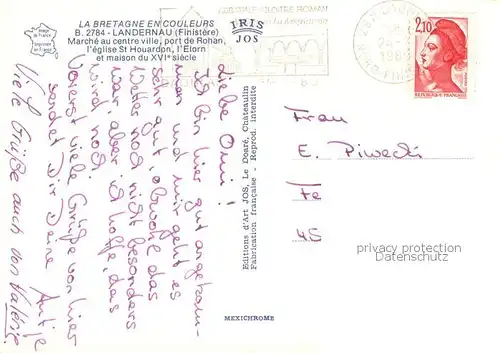 LA BRETAGNE EN COULEURS
B. 2784 - LANDERNAU (Finistère)
Marché au centre ville, port de Rohan,
l'église St Houardon, l'Elorn
et maison du XVIe siècle
Image de France
Imprimée en France
IRIS
JOS
CLOITRE ROMAN
2,10
REPUBLIQUE FRANCAISE
Liebe Omi!
Ich bin hier gut angekom-
men und mir geht es
sehr gut, obwohl das
Wetter noch nicht besonders
war, aber ich hoffe, das
wird noch.
Vorerst viele Grüße von hier
sendet Dir Deine Antje
Viele Grüße auch von Valérie.
Editions d'Art JOS, Le Doaré, Châteaulin
Fabrication française - Reprod. interdite
Frau
E. Piwecki
Fe
45
privacy protection
Datenschutz
MEXICHROME